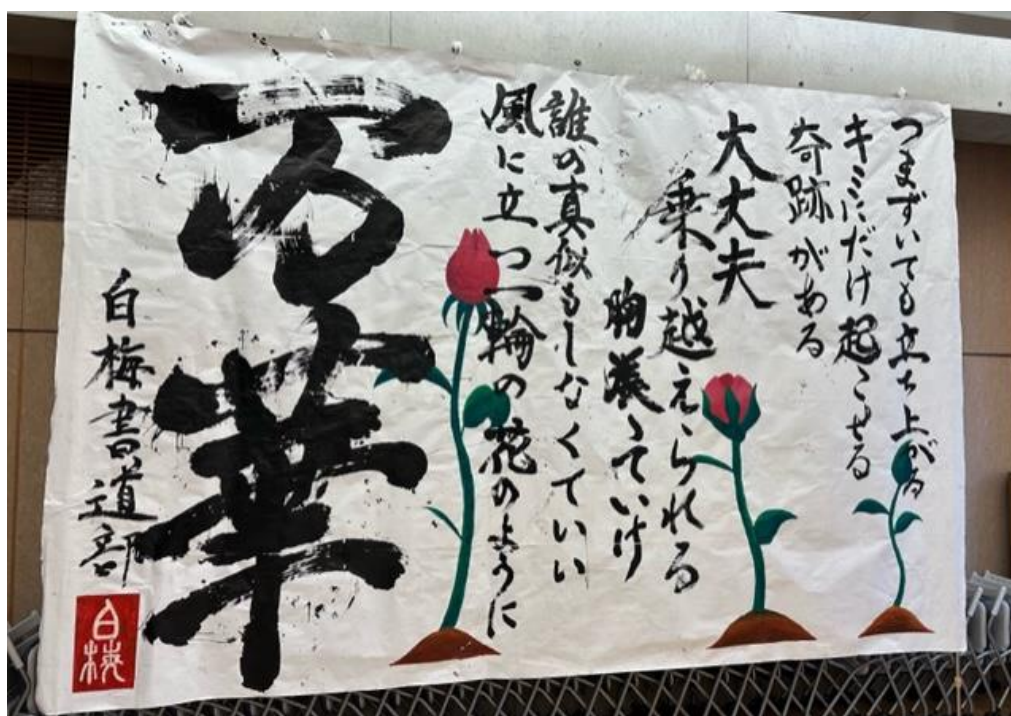 つまずいても立ち上がる
キミにだけ起こせる
奇跡がある
大丈夫
乗り越えられる
胸張っていけ
誰の真似もしなくていい
風に立つ一輪の花のように
万華
白梅書道部
白梅